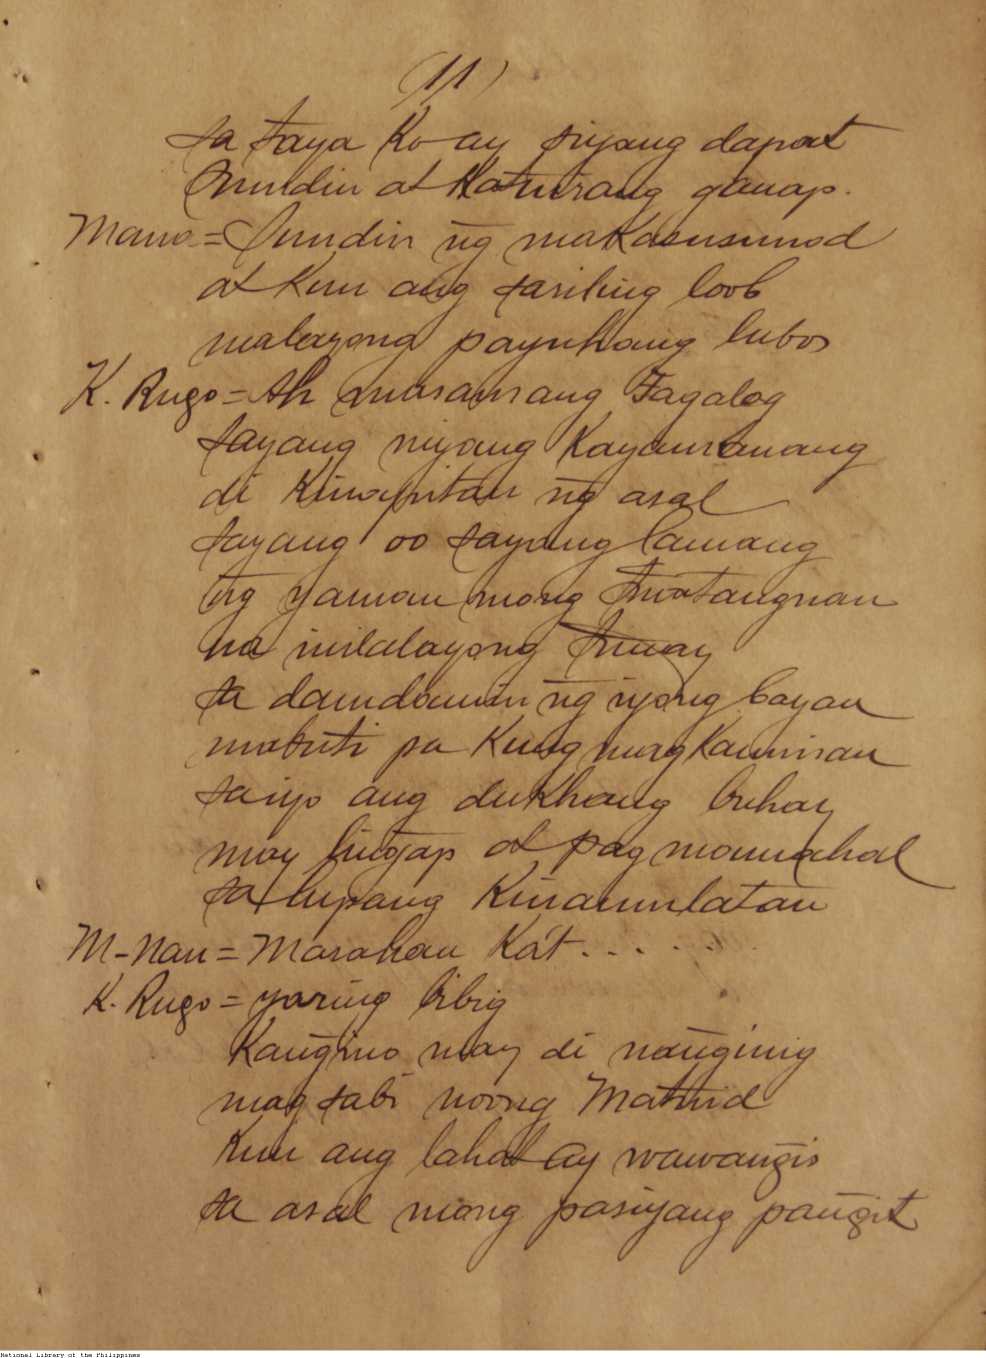 (11)
sa taya Ko ay siyang dapat
Sundin at Katuirang ganap.
Mana = Sundin ñg makasusunod
at Kun ang sariling loob
malayong payukang lubos
K. Rugo = Ah masamang Tagalog
sayang niyang Kayamanang
di Kinapitan ñg asal
sayang oo sayang lamang
ñg yaman mong tinatangnan
na inilalayong tunay
sa damdamin ñg iyong bayan
mabuti pa Kung magkaminsan
saiyo ang dukhang buhay
may lingap at pagmamahal
sa lupang Kinamulatan
M-Nan = Marahan Ka't . . . . .
K. Rugo = yaring bibig
Kañgino may di nañginig
magsabi noong Matuid
Kun ang lahat ay wawañgis
sa asal mong pasiyang pañgit
National Library of the Philippines